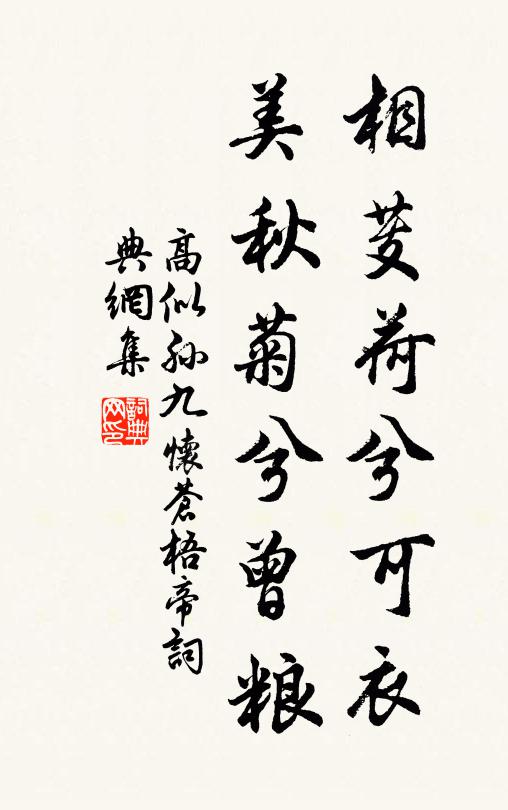 相芰荷兮可衣
美秋菊兮曾粮
高似孙九懷蒼梧帝詞
典網集
詞典网印